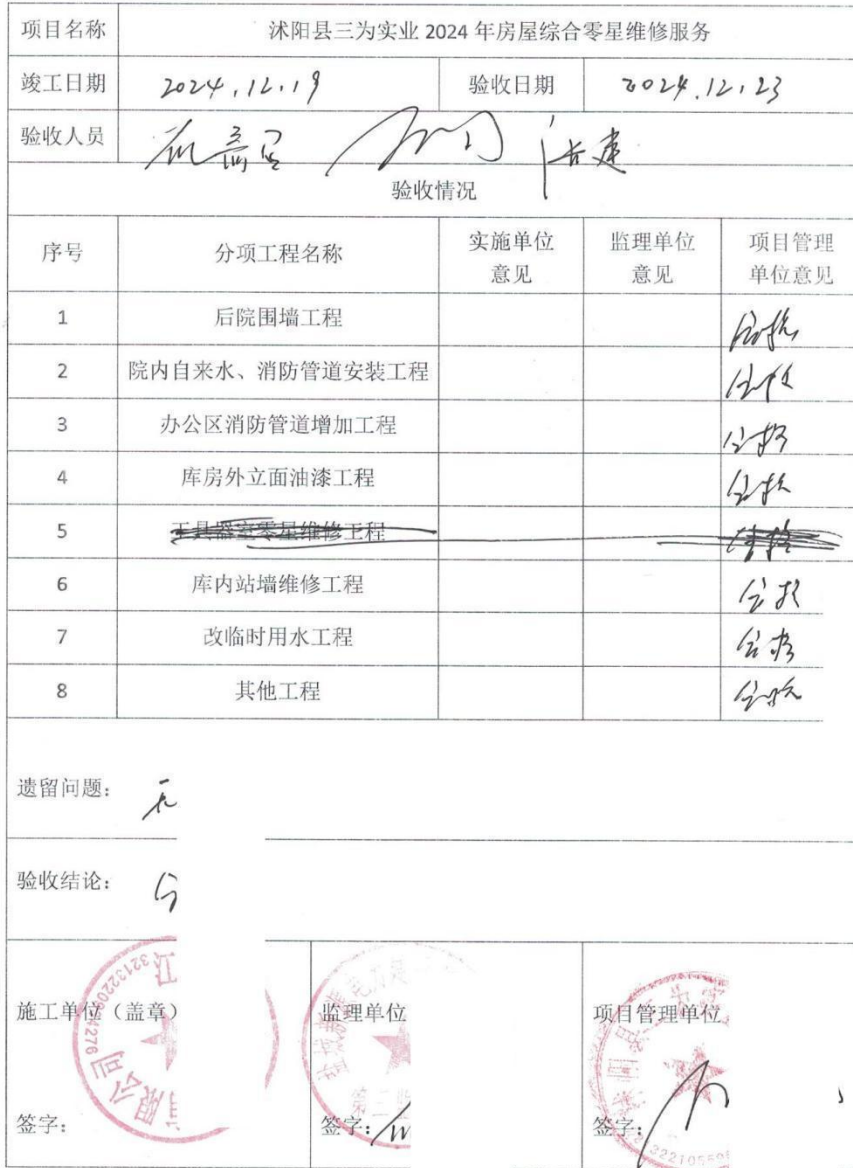 项目名称 沭阳县三为实业 2024 年房屋综合零星维修服务
竣工日期 2024.12.19 验收日期 2024.12.23
验收人员
验收情况
序号 分项工程名称 实施单位意见 监理单位意见 项目管理单位意见
1 后院围墙工程 合格
2 院内自来水、消防管道安装工程 合格
3 办公区消防管道增加工程 合格
4 库房外立面油漆工程 合格
5 工具器室零星维修工程
6 库内站墙维修工程 合格
7 改临时用水工程 合格
8 其他工程 合格
遗留问题： 无
验收结论：
施工单位（盖章） 监理单位 项目管理单位
签字： 签字： 签字：